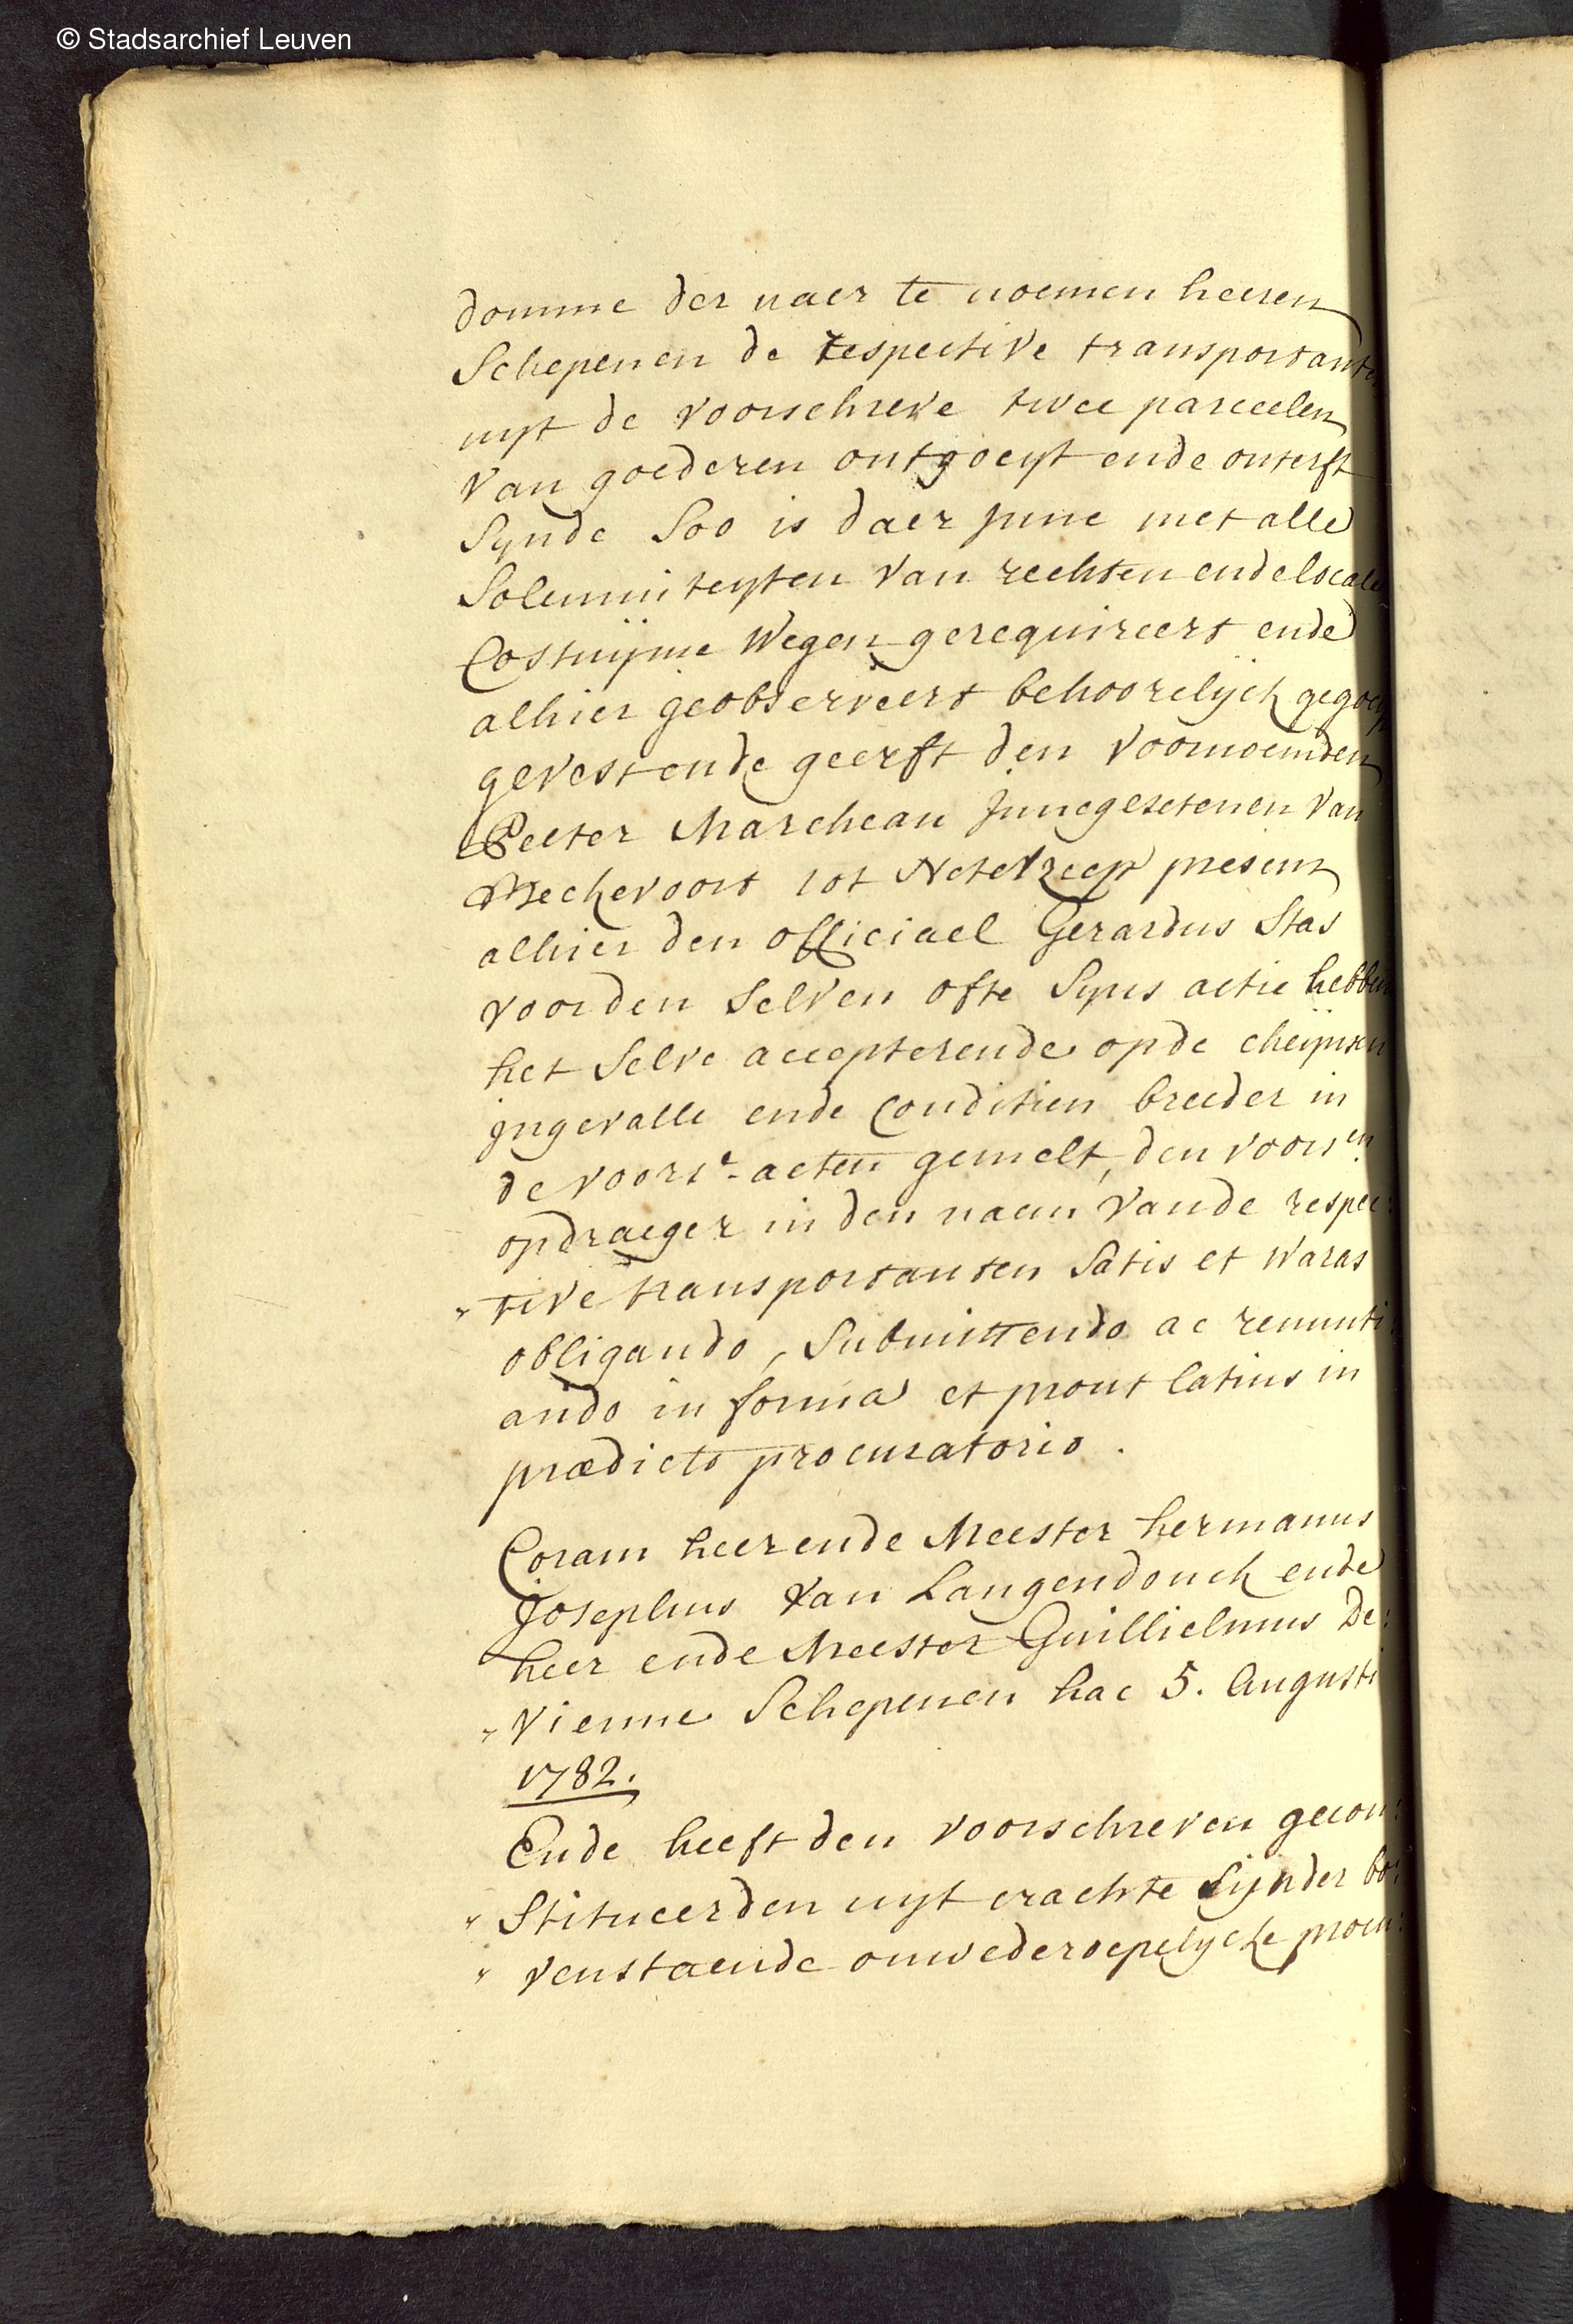 © Stadsarchief Leuven
domme der naer te noemen heeren
Schepenen de respective transportanten
uyt de voorschreve twee parceelen
van goederen ontgoeyt ende onterft
Synde Soo is daer jnne met alle
Solemniteyten van rechten ende locale
Costuijme Wegen gerequireert ende
alhier geobserveert behoorelijck gegoeyt
gevest ende geerft den voornoemden
Peeter Marcheau jnnegesetenen van
tot present
alhier den officiael Gerardus Stas
voor den Selven ofte Syns actie hebben
het Selve accepterende op de cheijnsen
jngevalle ende Conditien breeder in
de voors.e acten gemelt, den voors.en
opdraeger in den naem vande respec:
" tive transportanten Satis et Waras
obligando, Submittendo ac renunti:
ando in forma et prout latius in
prædicto procuratorio.
Coram heer ende Meester hermanus
Josephus Van Langendonck ende
heer ende Meester Guillielmus De:
" vienne Schepenen hac 5. Augusti
1782.
Ende heeft den voorschreven gecon:
" Stitueerden uyt crachte Sijnder bo:
" venstaende onwederoepelycke procu: